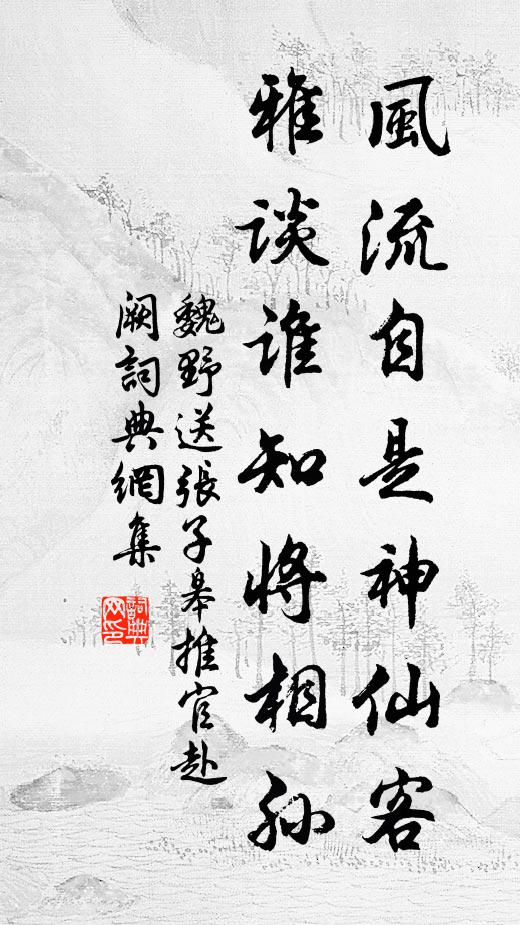 風流自是神仙客
雅談谁知將相孫
魏野送張子皋推官赴
闕詞典網集
詞典
网印